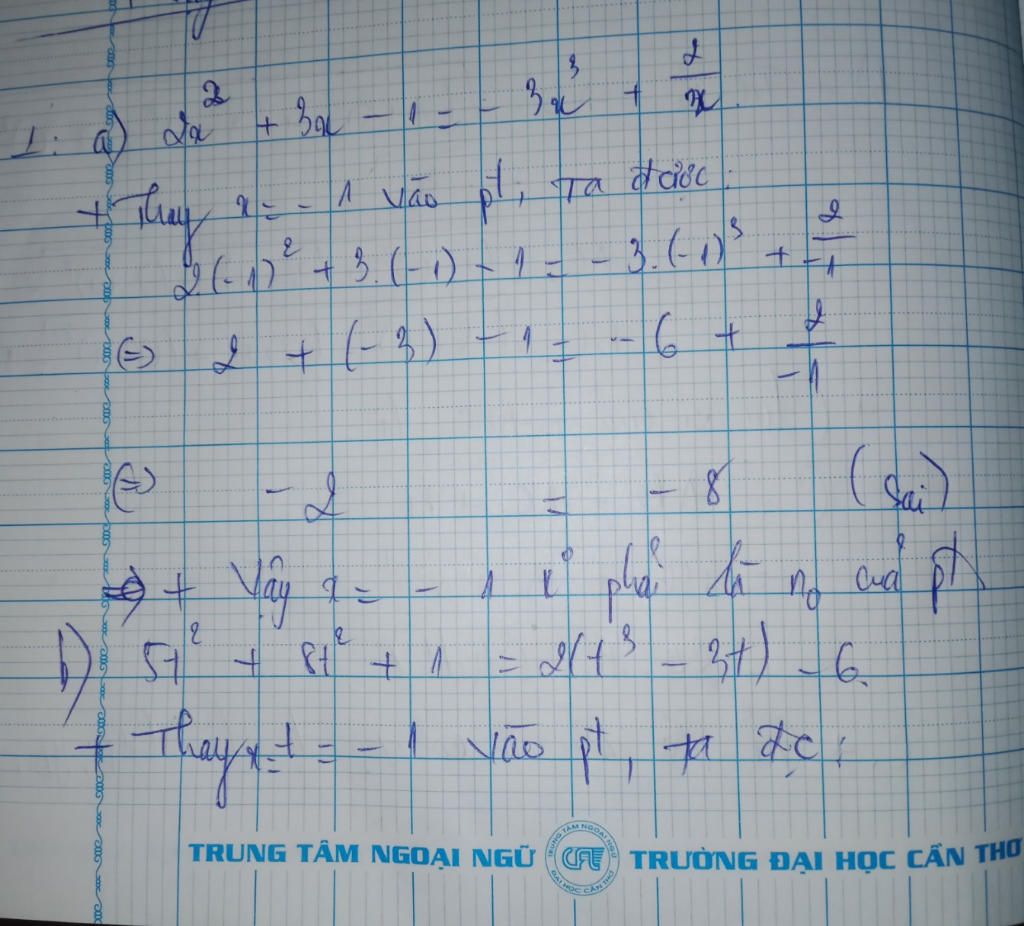 1: a) 2x² + 3x - 1 = - 3x³ + 2/x.
+ Thay x = - 1 vào pt, ta được:
2(-1)² + 3.(-1) - 1 = - 3.(-1)³ + 2/-1
(=) 2 + (-3) - 1 = - 6 + 2/-1
(=) - 2 = - 8 (Sai)
+ Vậy x = - 1 k⁰ phải là n₀ của pt
b) 5t² + 8t² + 1 = 2(t³ - 3t) - 6.
+ Thay x = t = - 1 vào pt, ta đc:
TRUNG TÂM NGOẠI NGỮ TRƯỜNG ĐẠI HỌC CẦN THƠ
TRUNG TÂM NGOẠI NGỮ
ĐẠI HỌC CẦN THƠ